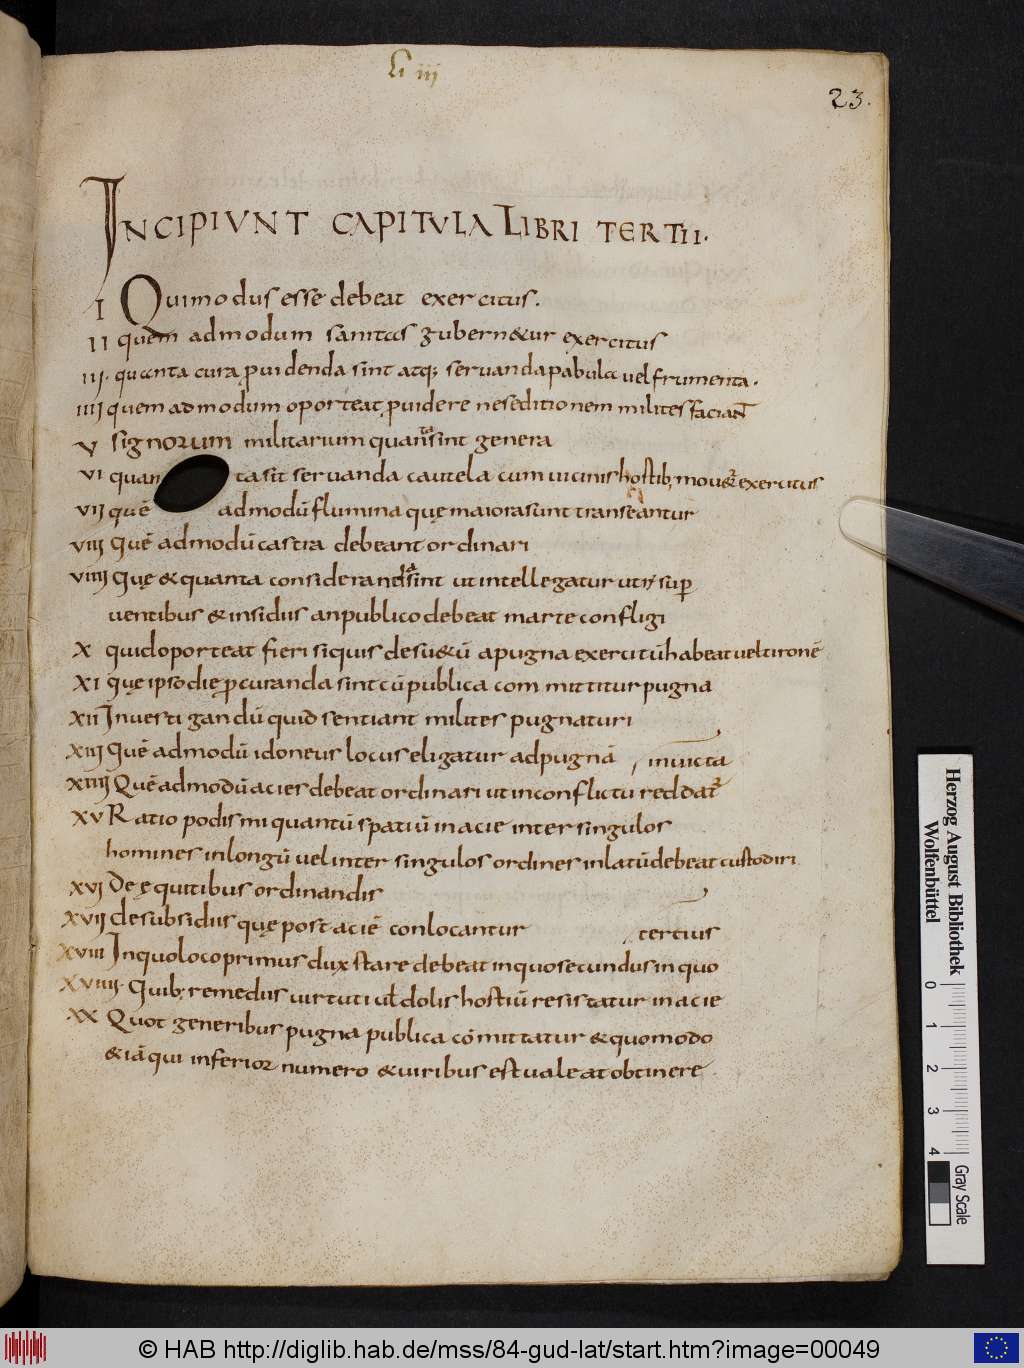 Li iii
23.
INCIPIVNT CAPITVLA LIBRI TERTII.
I Qui modus esse debeat exercitus.
II quem admodum sanitas gubern&ur exercitus
III. quanta cura p̱uidenda sint atq; seruanda pabula uel frumenta.
IIII quem admodum oporteat p̱uidere ne seditionem milites faciant
V signorum militarium quanta sint genera
VI quanta sit seruanda cautela cum uicinis hostib; mou&ur exercitus
VII quē admodū flumina quę maiora sunt transeantur
VIII Quē admodū castra debeant ordinari
VIIII Quę & quanta consideranda sint ut intellegatur utrū sup
uentibus & insidiis an publico debeat marte confligi
X quid oporteat fieri si quis desu&ū a pugna exercitū habeat uel tironē
XI quę ipso die p̱curanda sint cū publica committitur pugna
XII Inuestigandū quid sentiant milites pugnaturi
XIII Quē admodū idoneus locus eligatur ad pugnā
inuicta
XIIII Quē admodū acies debeat ordinari ut in conflictu reddatur
XV Ratio podismi quantū spatiū in acie inter singulos
homines in longū uel inter singulos ordines in latū debeat custodiri
XVI De ęquitibus ordinandis
XVII de subsidiis quę post aciē conlocantur
tertius
XVIII In quo loco primus dux stare debeat in quo secundus in quo
XVIIII. Quib; remediis uirtuti ul dolis hostiū resistatur in acie
XX Quot generibus pugna publica cōmittatur & quomodo
& iā qui inferior numero & uiribus est ualeat obtinere
Herzog August Bibliothek
Wolfenbüttel
0 1 2 3 4
Gray Scale
© HAB http://diglib.hab.de/mss/84-gud-lat/start.htm?image=00049